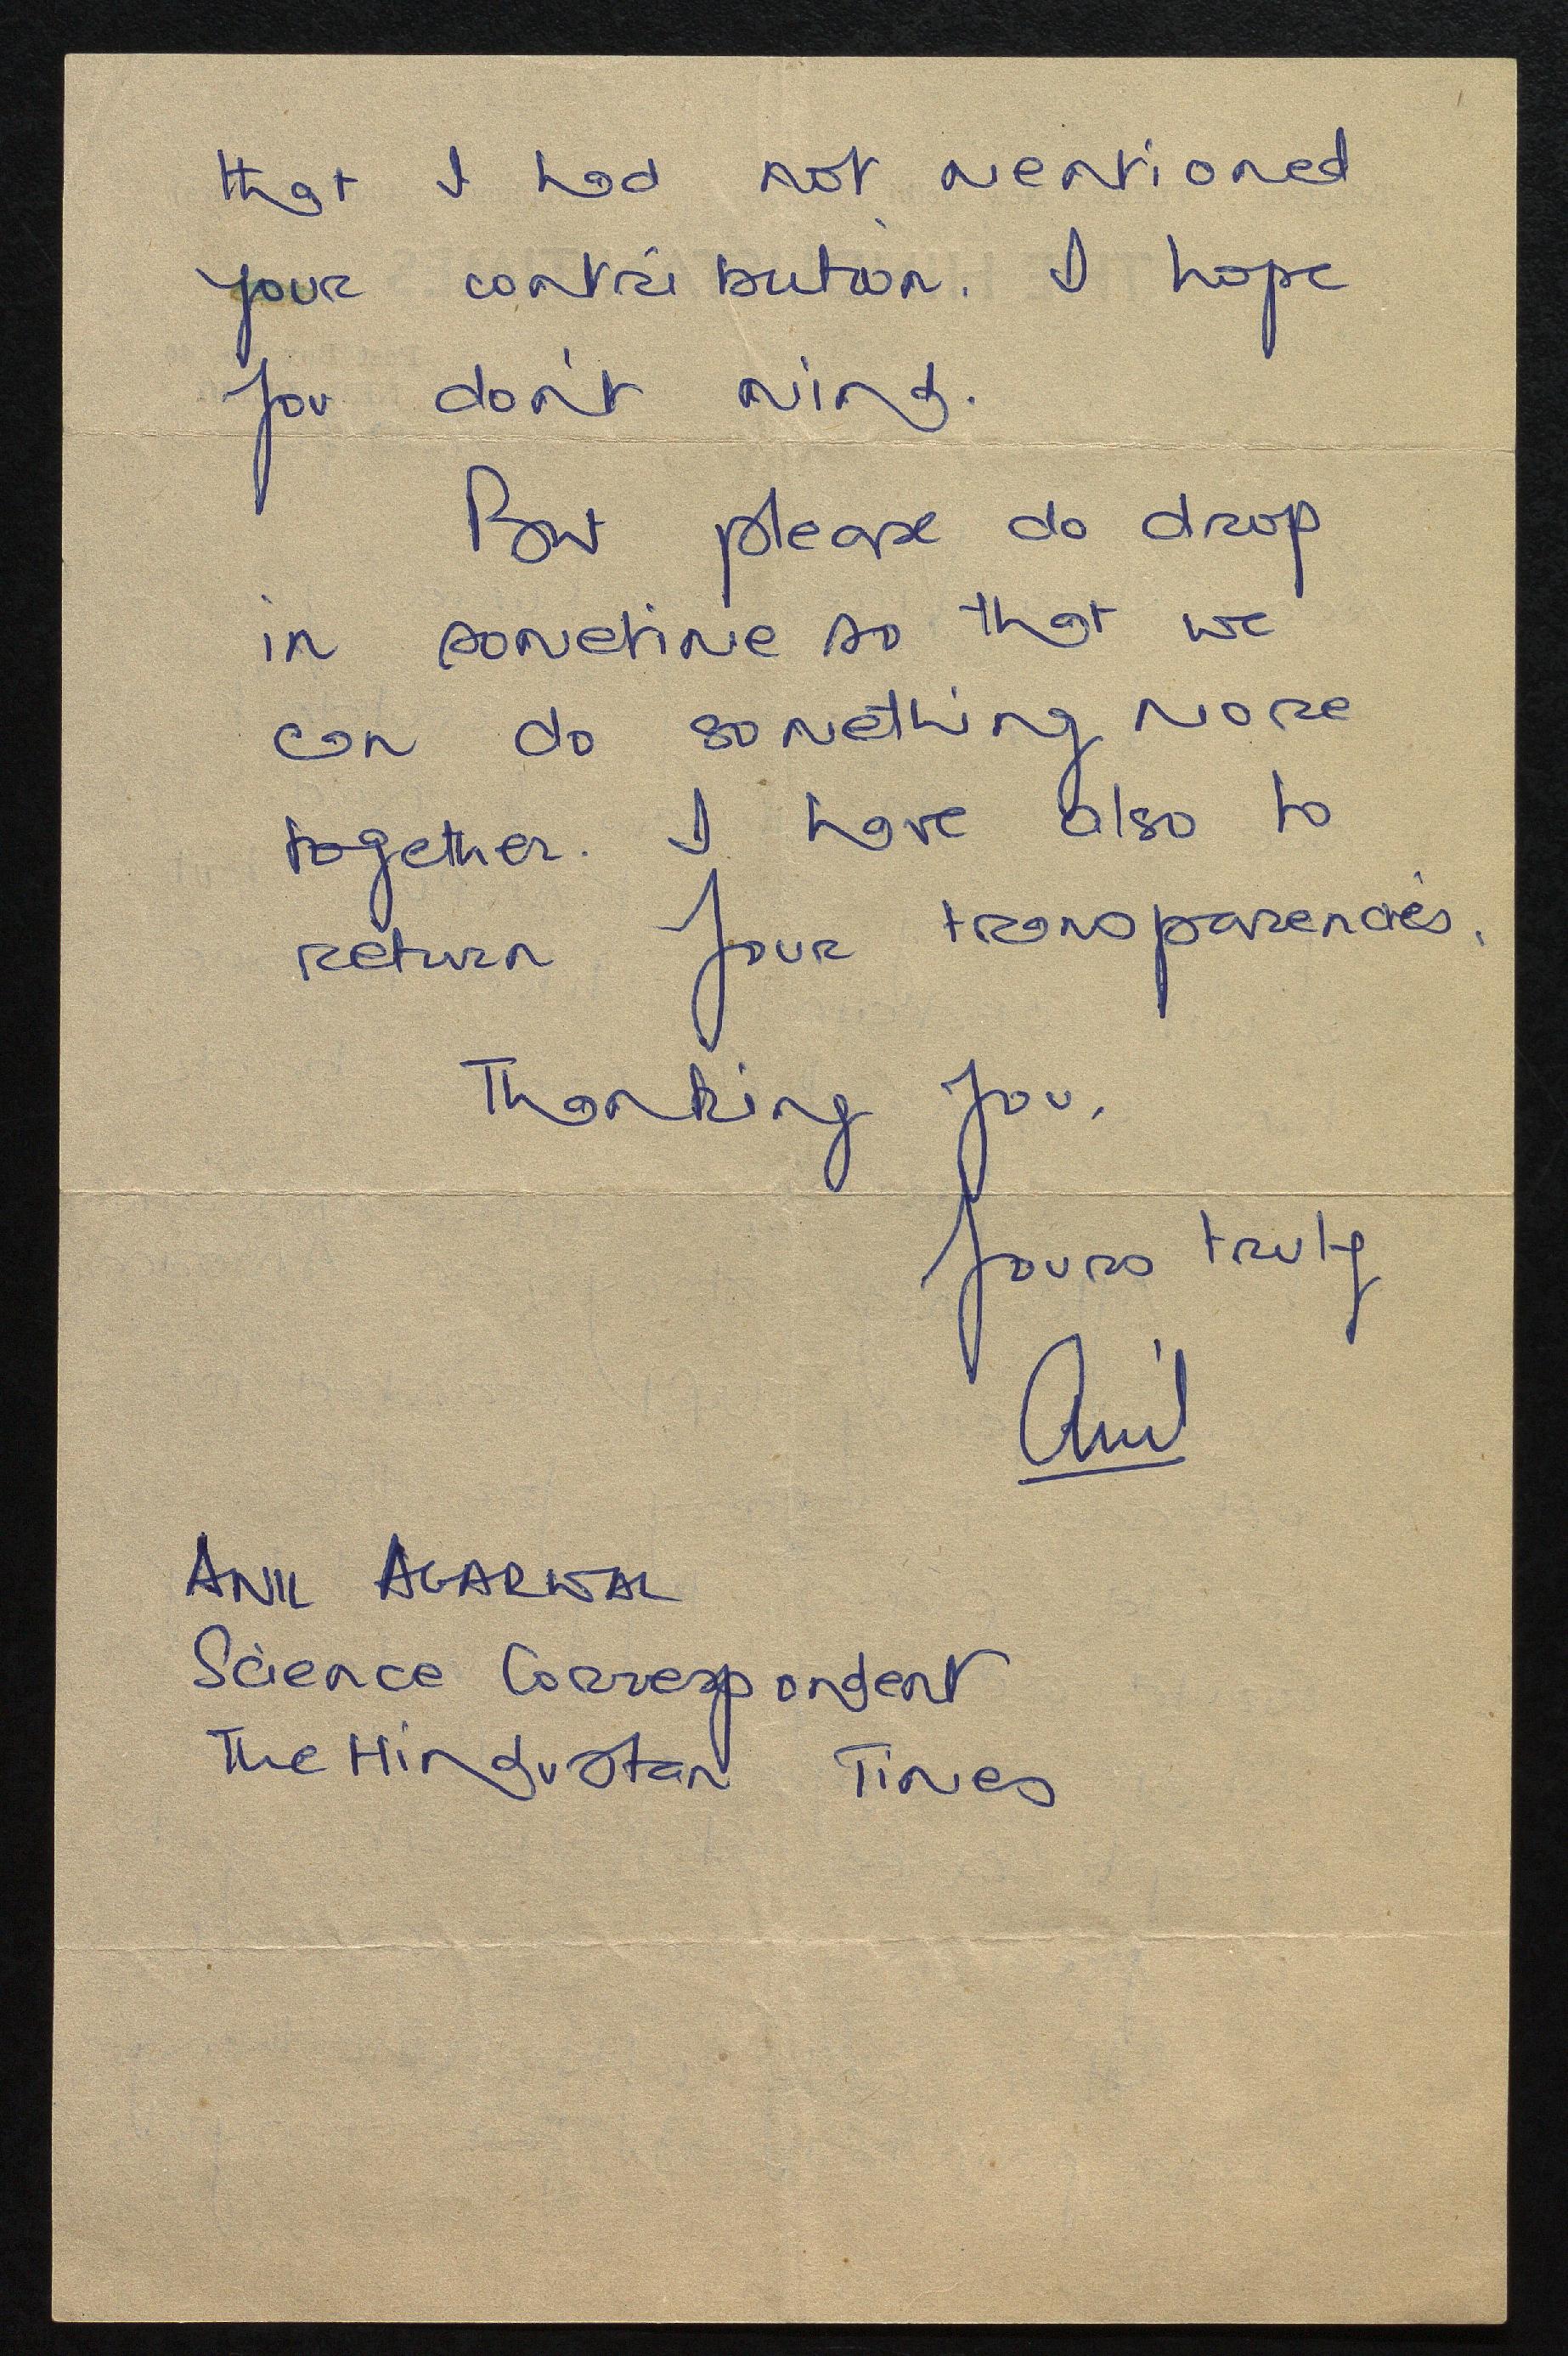 that I had not mentioned
your contribution. I hope
you don't mind.
But please do drop
in sometime so that we
can do something more
together. I have also to
return your transparencies.
Thanking you,
Yours truly
Anil
ANIL AGARWAL
Science Correspondent
The Hindustan Times